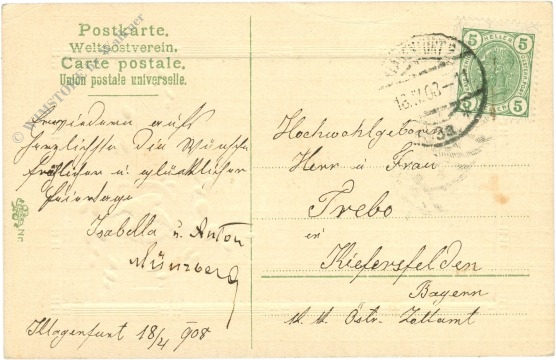 Postkarte.
Weltpostverein.
Carte postale.
Union postale universelle.
Erwiedern aufs
herzlichste die Wünsche
fröhlicher u. glücklicher
Feiertage
Isabella u. Anton
Münzberg
Klagenfurt 18/4 908
5 HELLER 5
5 5
18.IV.08
Hochwohlgeboren
Herr u Frau
Trebo
in
Kiefersfelden
Bayern
k. k. Östr. Zollamt